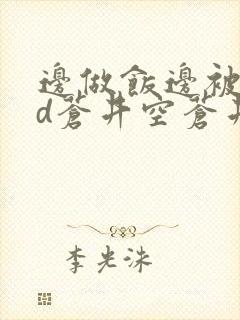 邊做飯邊被
d蒼井空蒼井
李光洙